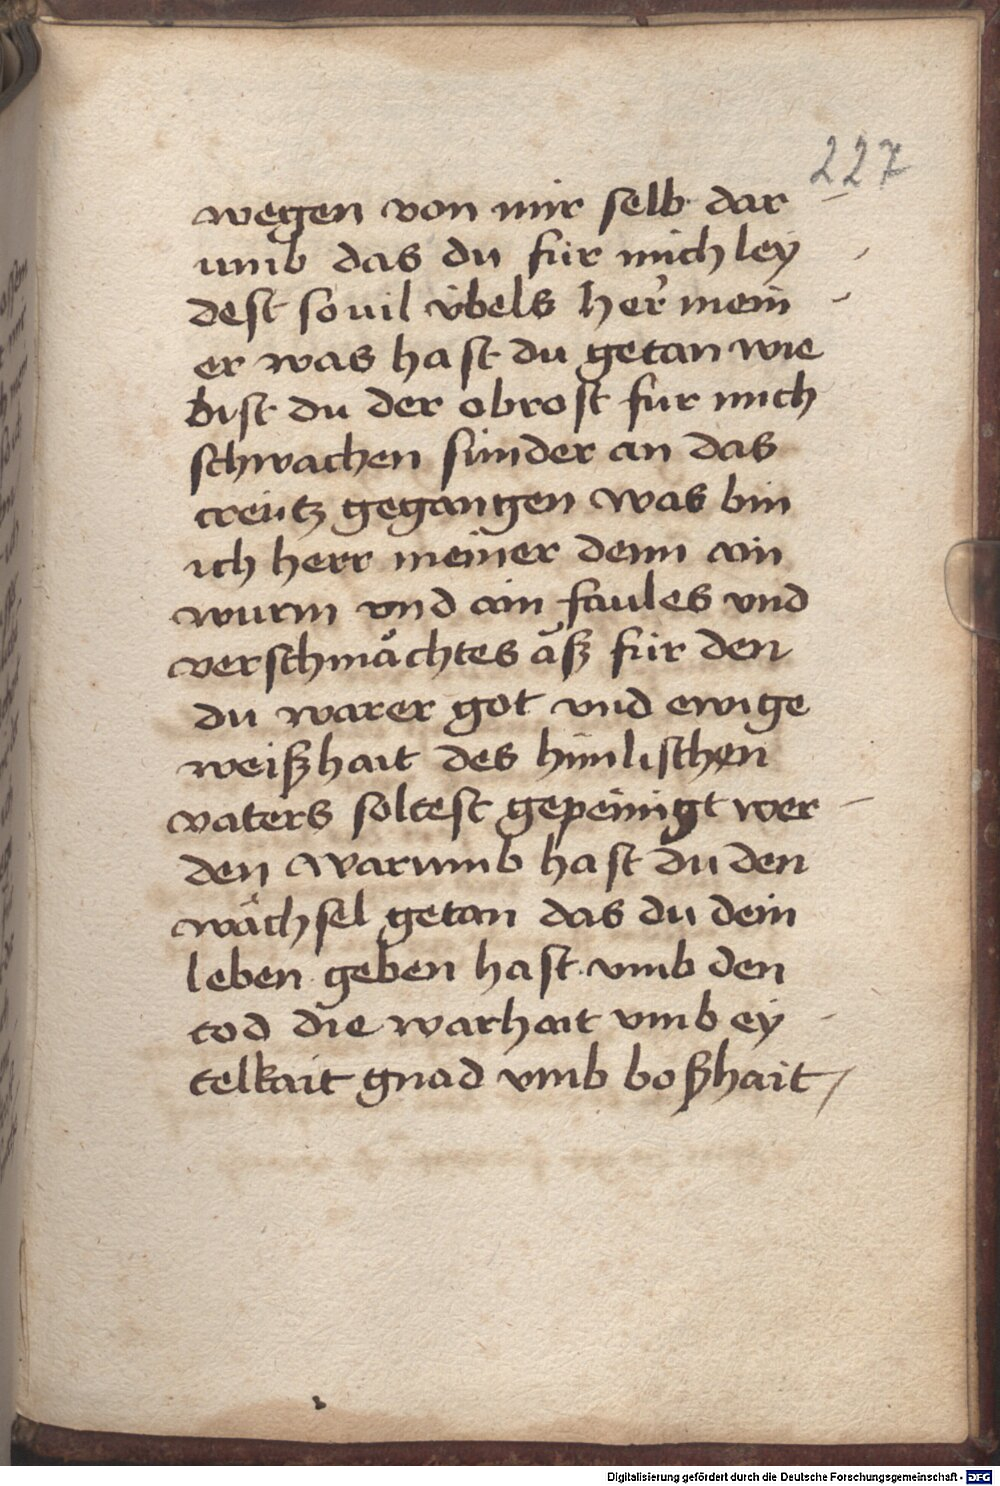 227
wegen von mir selb dar
umb das du für mich ley
dest so uil v̈bels her̄ mein
er was hast du getan wie
bist du der obrost fur mich
schwachen sünder an das
creütz gegangen was bin
ich herr meiner denn ain
wurm vnd ain faules vnd
verschmächtes äß für den
du warer got vnd ewige
weißhait des himlischen
vaters soltest gepeinigt wer
den warumb hast du den
wächsel getan das du dein
leben geben hast vmb den
tod die warhait vmb ey
telkait gnad vmb boßhait
Digitalisierung gefördert durch die Deutsche Forschungsgemeinschaft - DFG